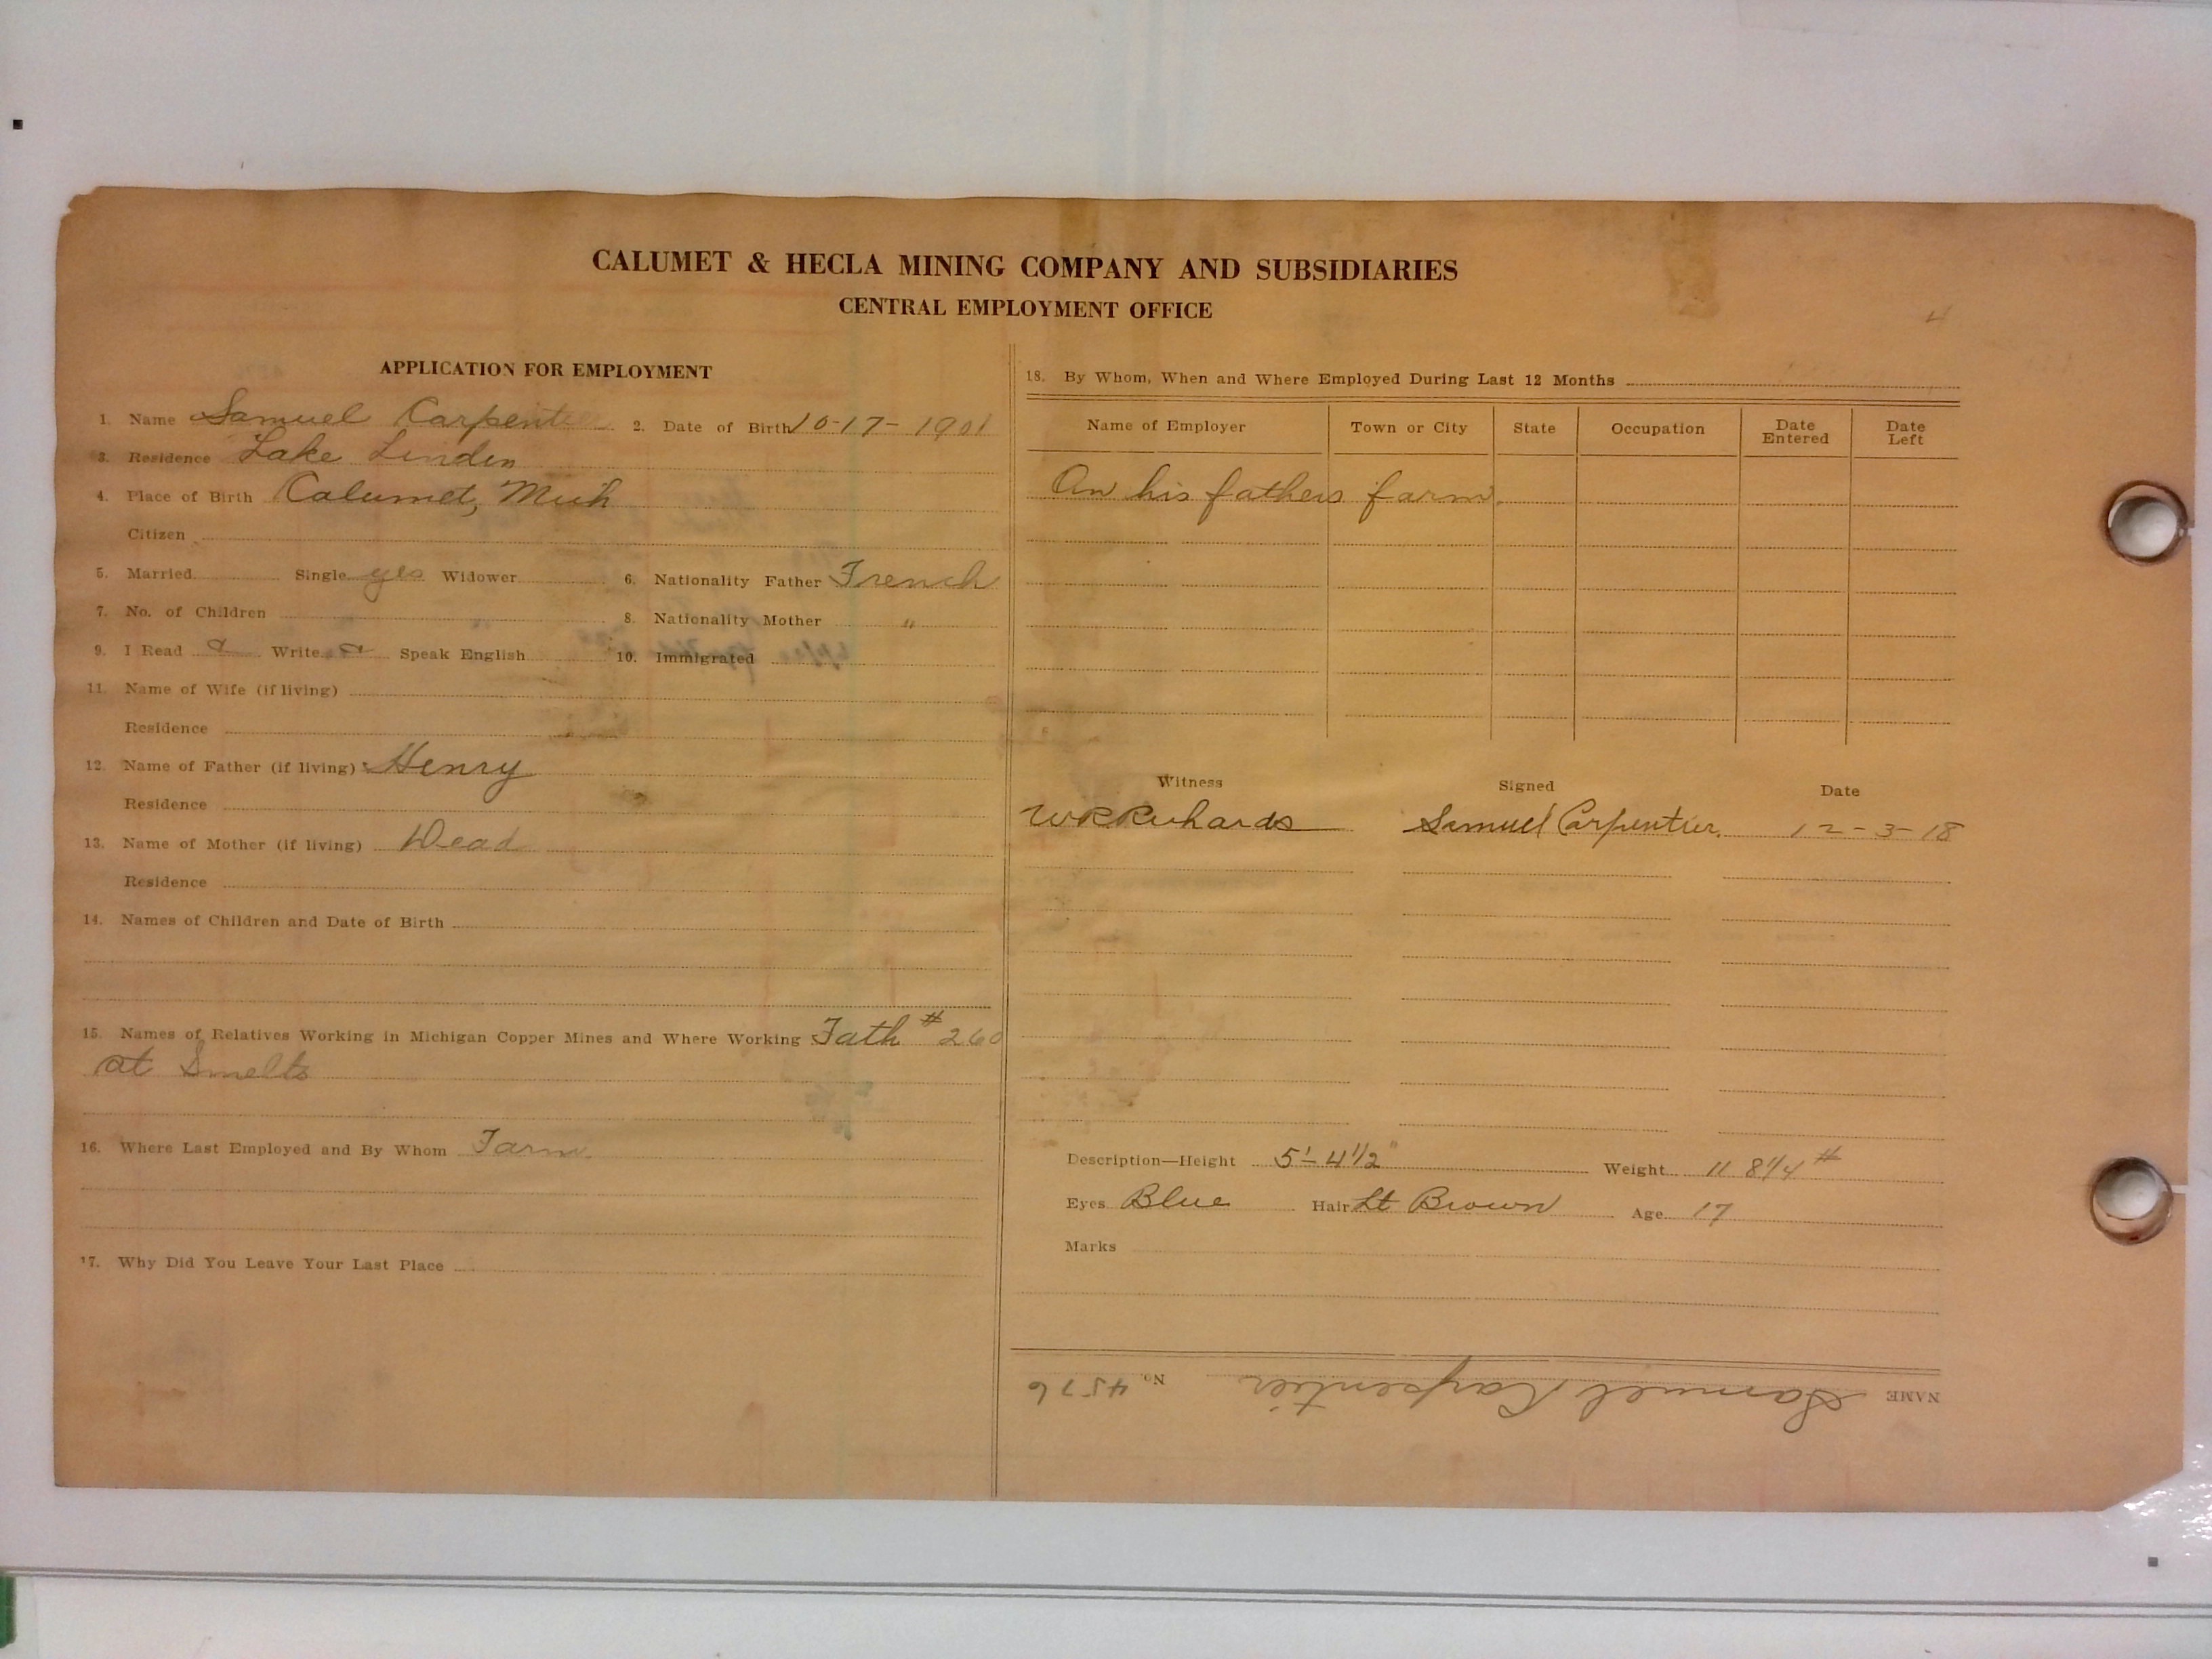 CALUMET & HECLA MINING COMPANY AND SUBSIDIARIES
CENTRAL EMPLOYMENT OFFICE
4
APPLICATION FOR EMPLOYMENT
1. Name Samuel Carpentier 2. Date of Birth 10-17-1901
3. Residence Lake Linden
4. Place of Birth Calumet, Mich
Citizen
5. Married Single yes Widower 6. Nationality Father French
7. No. of Children 8. Nationality Mother "
9. I Read Write Speak English 10. Immigrated
11. Name of Wife (if living)
Residence
12. Name of Father (if living) Henry
Residence
13. Name of Mother (if living) Dead
Residence
14. Names of Children and Date of Birth
15. Names of Relatives Working in Michigan Copper Mines and Where Working Fath # 260
at Smelts
16. Where Last Employed and By Whom Farm
17. Why Did You Leave Your Last Place
18. By Whom, When and Where Employed During Last 12 Months
Name of Employer Town or City State Occupation Date Entered Date Left
On his fathers farm.
Witness Signed Date
WR Richards Samuel Carpentier. 12-3-18
Description—Height 5'-4 1/2" Weight 118 1/4 #
Eyes Blue Hair Lt Brown Age 17
Marks
NAME Samuel Carpentier No. 4576